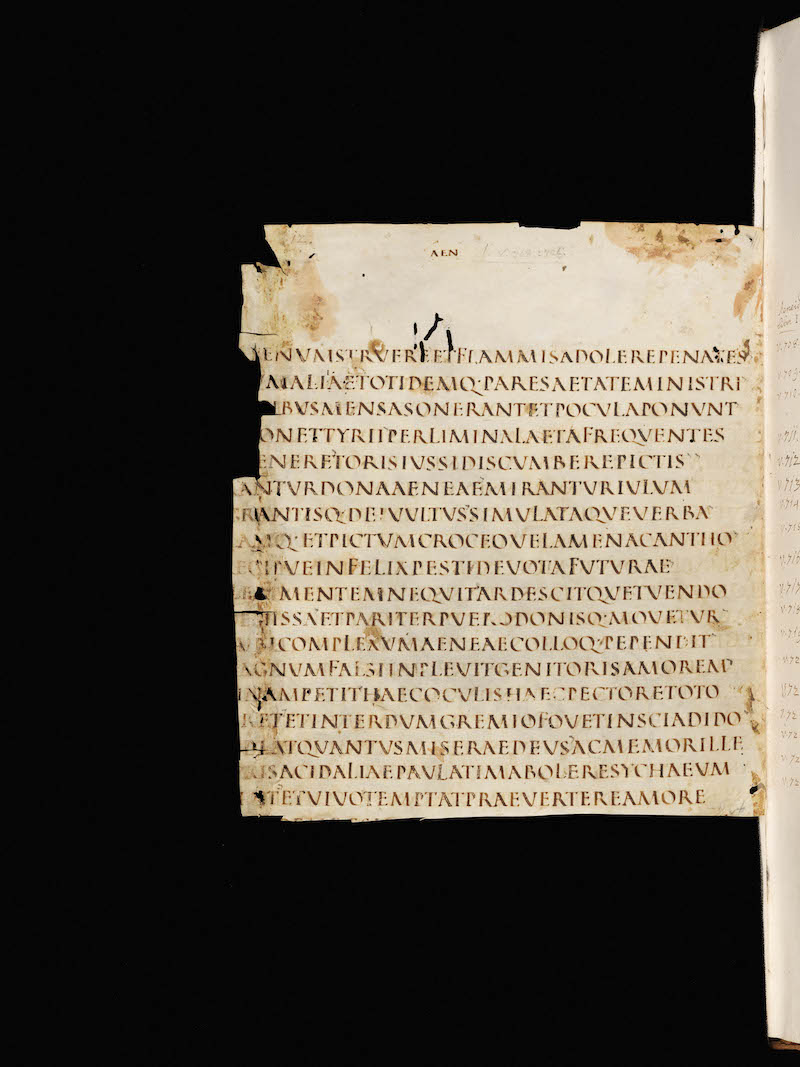 AEN
ENVMISTRVEREETFLAMMISADOLEREPENATES
MALIAETOTIDEMQ·PARESAETATEMINISTRI
IBVSMENSASONERANTETPOCVLAPONVNT
ONETTYRIIPERLIMINALAETAFREQVENTES
ENERETORISIVSSIDISCVMBEREPICTIS
ANTVRDONAAENEAEMIRANTVRIVLVM
RANTISQ·DEIVVLTVSSIMVLATAQVEVERBA
AMQ·ETPICTVMCROCEOVELAMENACANTHO
CIPVEINFELIXPESTIDEVOTAFVTVRAE
MENTEMNEQVITARDESCITQVETVENDO
NISSAETPARITERPVERODONISQ·MOVETVR
COMPLEXVMAENEAECOLLOQ·PEPENDIT
AGNVMFALSIINPLEVITGENITORISAMOREMP
INAMPETITHAECOCVLISHAECPECTORETOTO
RETETINTERDVMGREMIOFOVETINSCIADIDO
ATQVANTVSMISERAEDEVSACMEMORILLE
ISACIDALIAEPAVLATIMABOLERESYCHAEVM
TETVIVOTEMPTATPRAEVERTEREAMORE